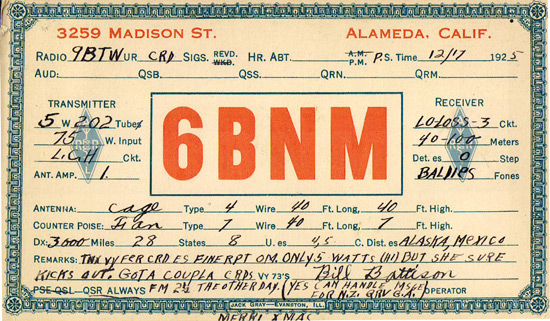 3259 MADISON ST. ALAMEDA, CALIF.
RADIO 9BTW UR CRD SIGS. REVD. WKD. HR. ABT. A.M. P.M. P.S. TIME 12/17 1925
AUD: QSB. QSS. QRN. QRM.
TRANSMITTER
5 W. 202 TUBES
75 W. INPUT
L.C.H CKT.
ANT. AMP. 1.
6BNM
RECEIVER
LO-LOSS-3 CKT.
40-100 METERS
DET. ES 0 STEP
BALDIES FONES
ANTENNA: cage TYPE 4 WIRE 40 FT. LONG, 40 FT. HIGH.
COUNTER POISE: Fan TYPE 7 WIRE 40 FT. LONG, 7 FT. HIGH.
DX: 3000 MILES 28 STATES 8 U. ES 4,5 C. DIST. ES ALASKA, MEXICO
REMARKS: TNX VY FER CRD ES FINE RPT OM. ONLY 5 WATTS (HI) BUT SHE SURE
KICKS OUT. GOT A COUPLA CRDS VY 73'S Bill Battison
PSE QSL QSR ALWAYS FM 2Z THE OTHER DAY. (YES CAN HANDLE MSGE OPERATOR
FOR NZ.
JACK GRAY—EVANSTON, ILL.
MERRI XMAS